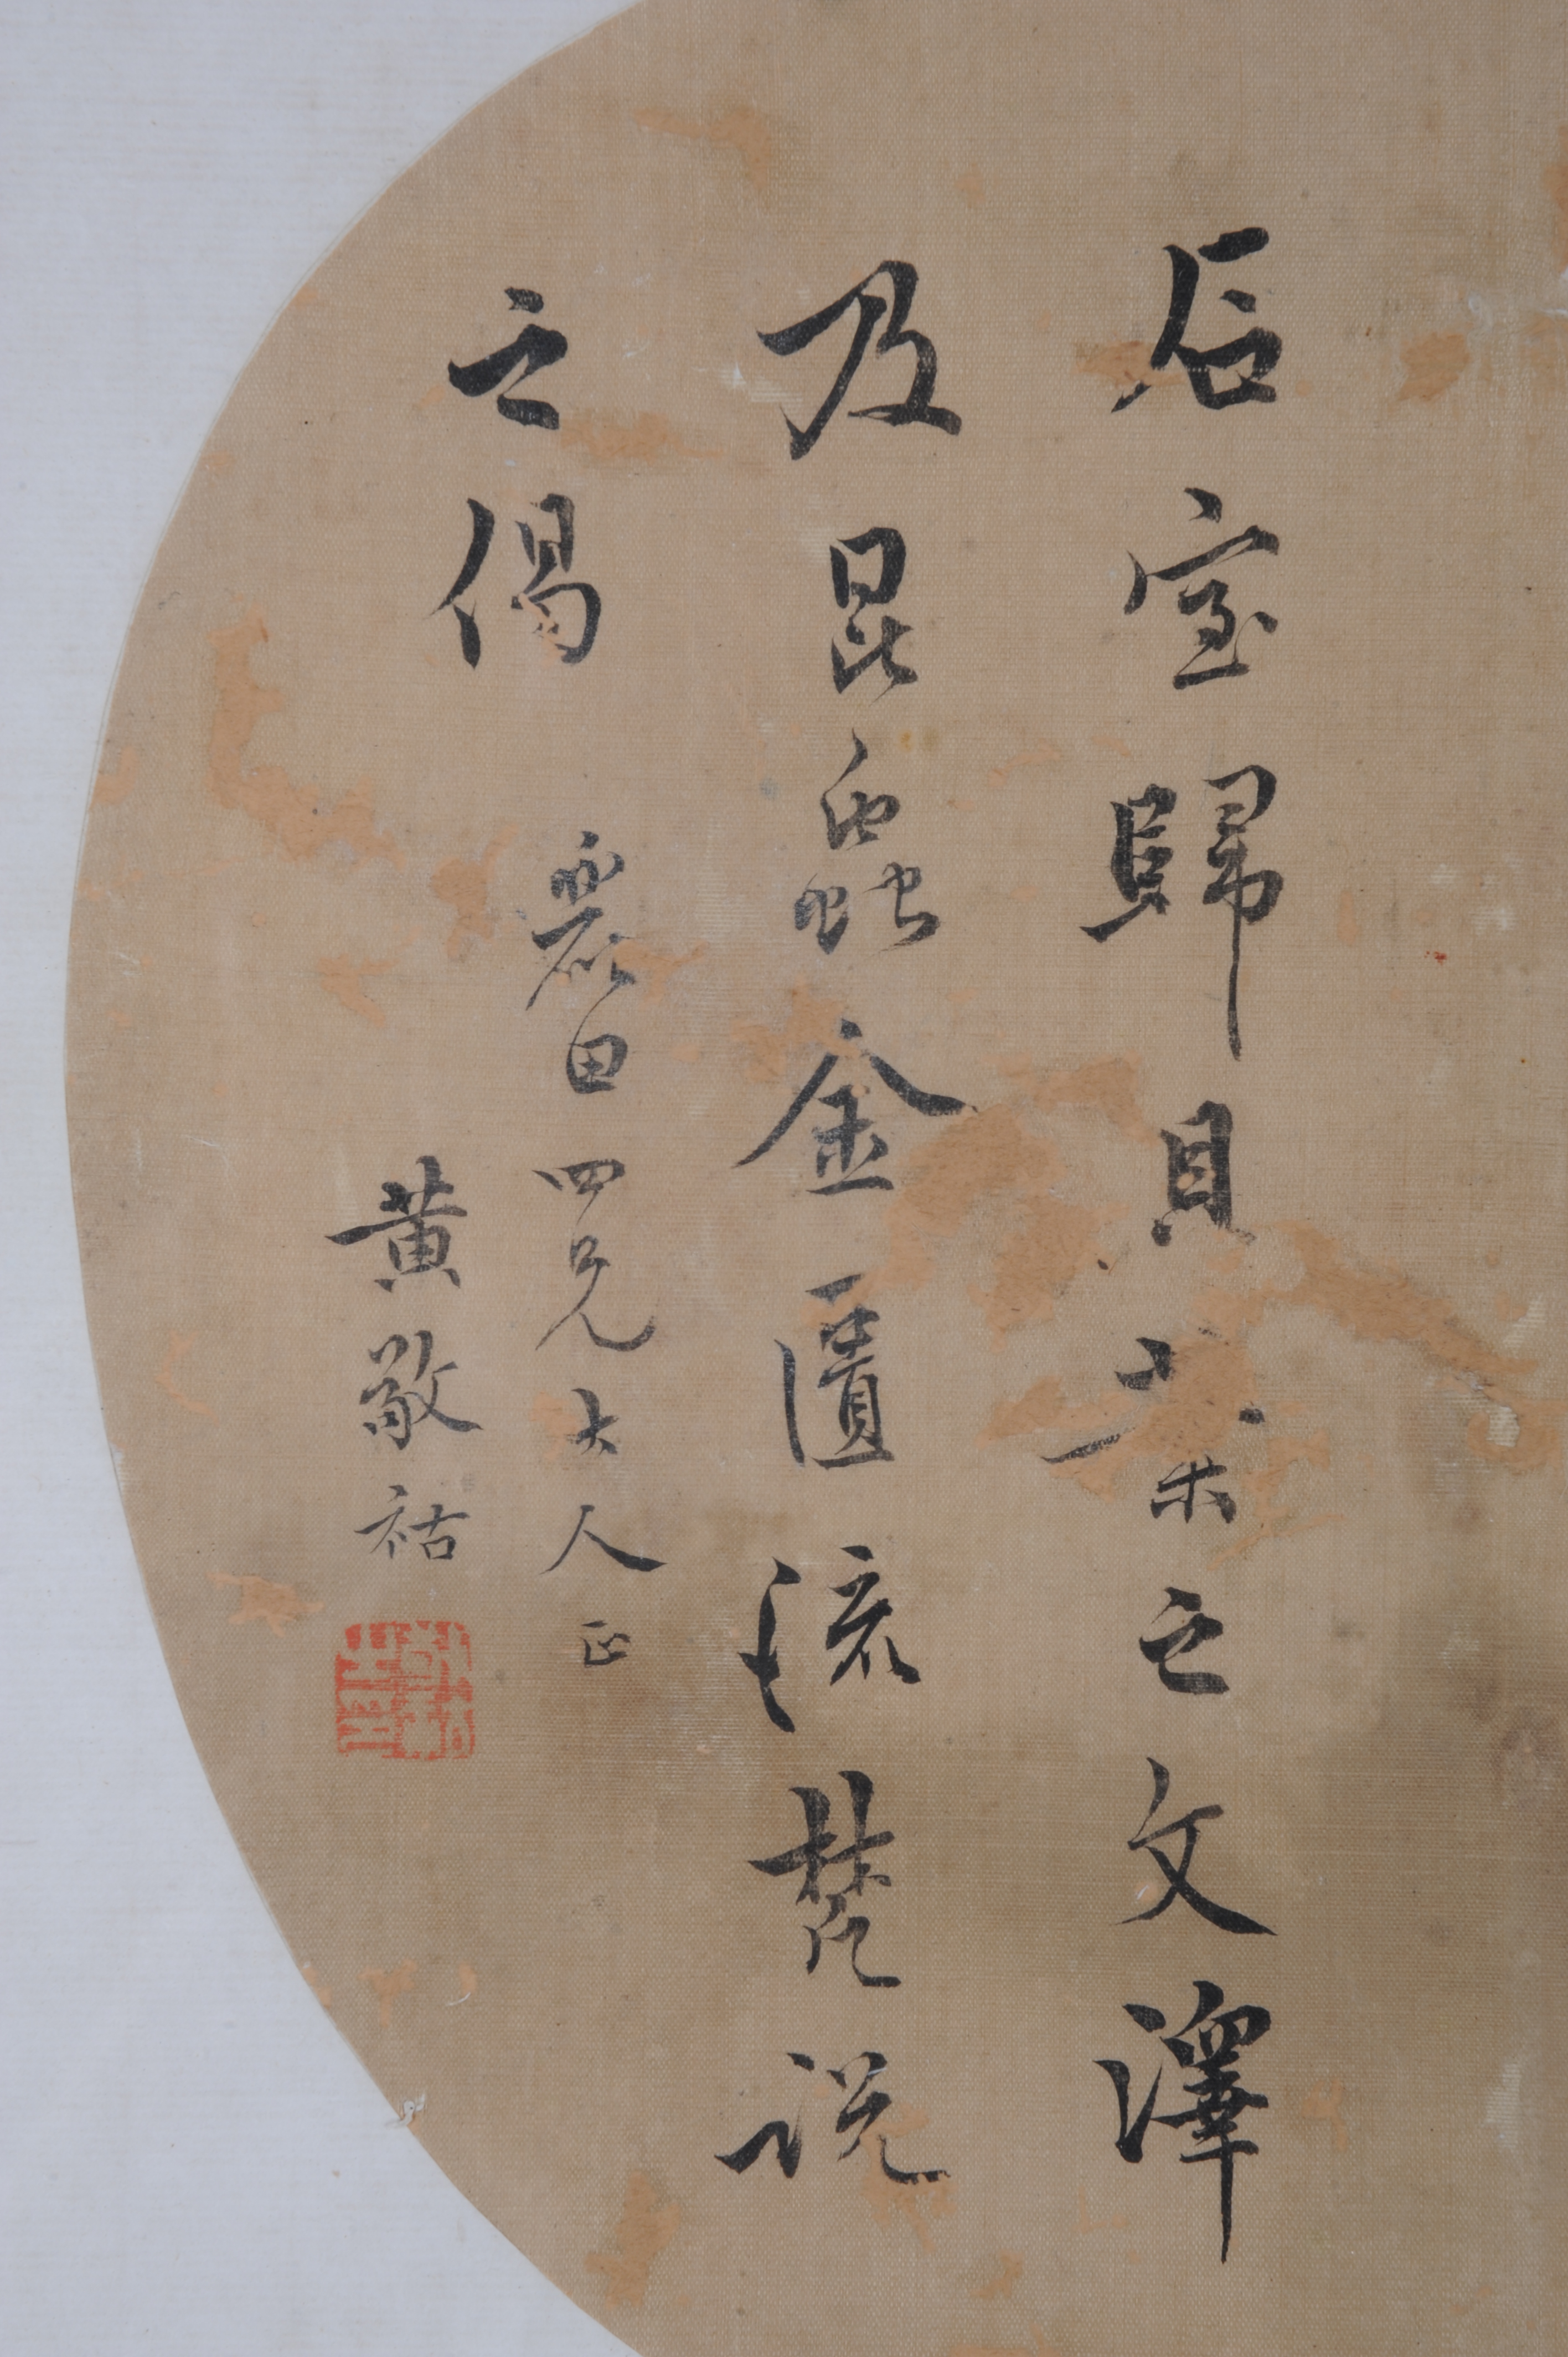 石室歸貝葉之文澤
及昆蟲金匱流梵說
之偈
麗田四兄大人正
黃敬祜